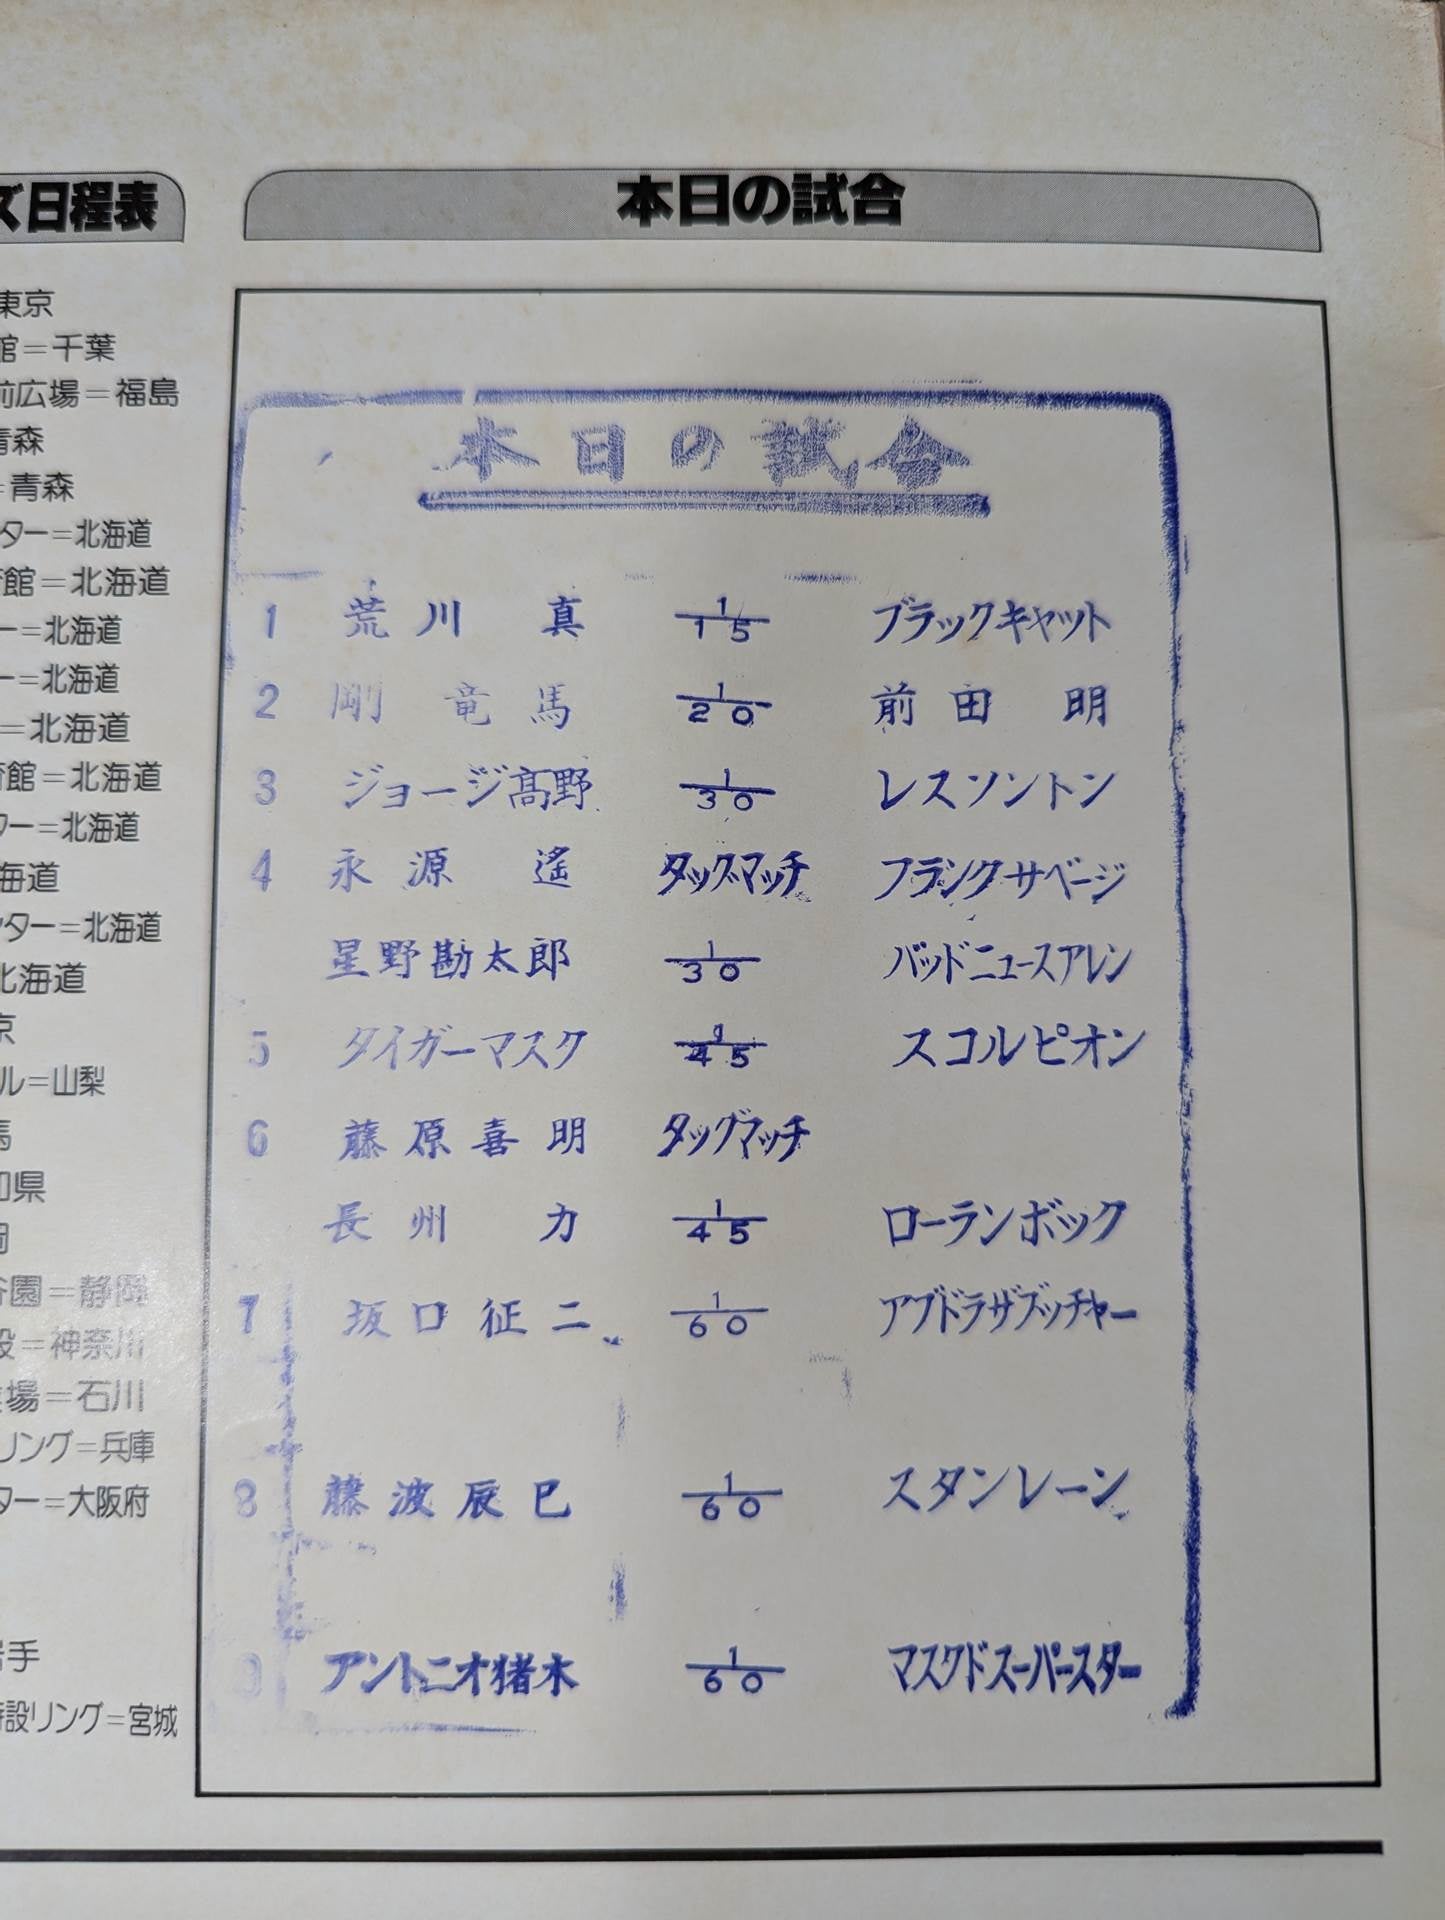 ズ日程表
東京
館=千葉
前広場=福島
青森
=青森
ター=北海道
館=北海道
ー=北海道
ー=北海道
=北海道
育館=北海道
ター=北海道
海道
ンター=北海道
北海道
京
ル=山梨
馬
知県
岡
谷園=静岡
設=神奈川
場=石川
リング=兵庫
ター=大阪府
岩手
特設リング=宮城
本日の試合
本日の試合
1 荒川 真 1/15 ブラックキャット
2 剛 竜馬 1/20 前田 明
3 ジョージ髙野 1/30 レスソントン
4 永源 遙 タッグマッチ フランクサベージ
星野勘太郎 1/30 バッドニュースアレン
5 タイガーマスク 1/45 スコルピオン
6 藤原喜明 タッグマッチ
長州 力 1/45 ローランボック
7 坂口征二 1/60 アブドラザブッチャー
8 藤波辰巳 1/60 スタンレーン
9 アントニオ猪木 1/60 マスクドスーパースター